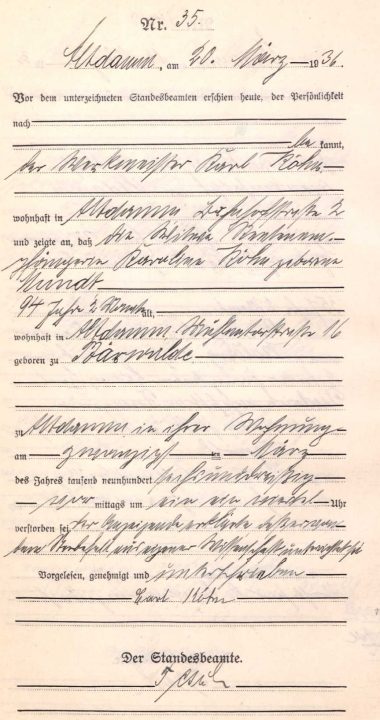 Nr. 35.
Altdamm, am 20. März 1936.
Vor dem unterzeichneten Standesbeamten erschien heute, der Persönlichkeit
nach
be kannt,
der Werkmeister Karl Köhn
wohnhaft in Altdamm Bahnhofstraße 2
und zeigte an, daß die Witwe Rentenem-
pfängerin Karoline Köhn geborene
Mundt
94 Jahr 2 Monate alt,
wohnhaft in Altdamm, Mühlentorstraße 16
geboren zu Bärwalde
zu Altdamm in ihrer Wohnung
am zwanzigsten März
des Jahres tausend neunhundert sechsunddreißig
vor mittags um ein ein viertel Uhr
verstorben sei. Der Anzeigende erklärte
aus eigener Wissenschaft unterrichtet sei
Vorgelesen, genehmigt und unterschrieben
Karl Köhn
Der Standesbeamte.